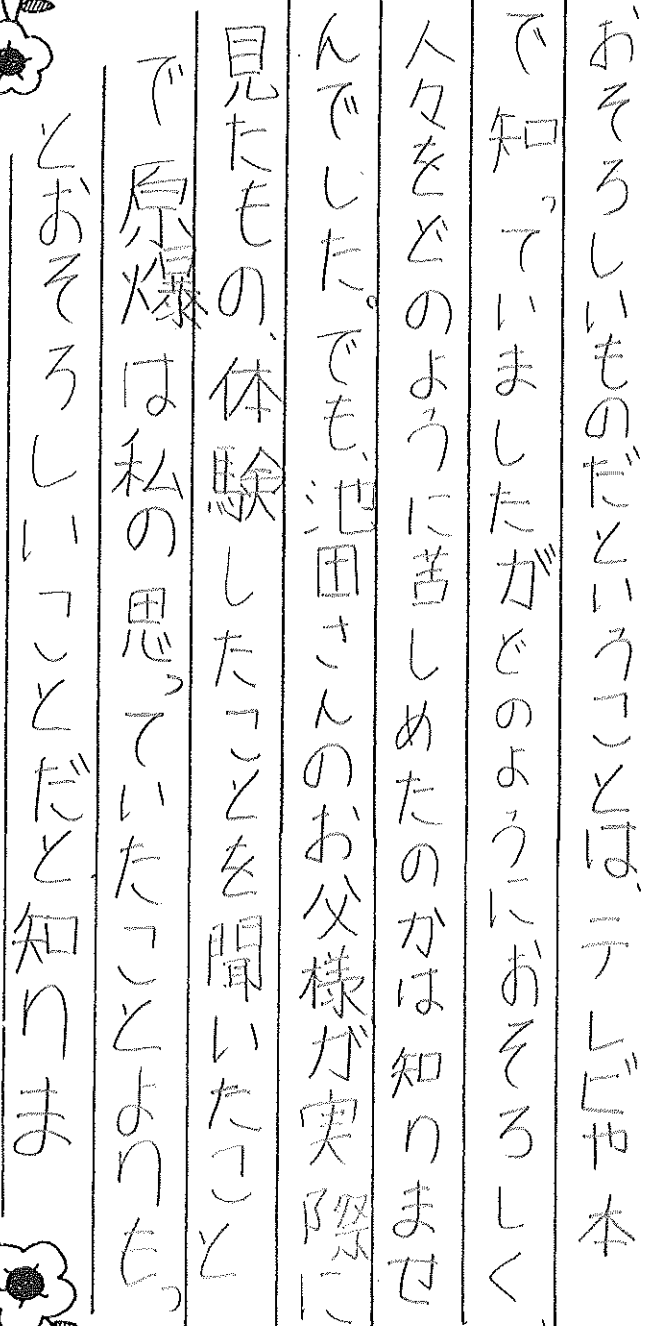 おそろしいものだということは、テレビや本
で知っていましたがどのようにおそろしく
人々をどのように苦しめたのかは知りませ
んでした。でも、池田さんのお父様が実際に
見たもの、体験したことを聞いたこと
で原爆は私の思っていたことよりもっ
とおそろしいことだと知りま